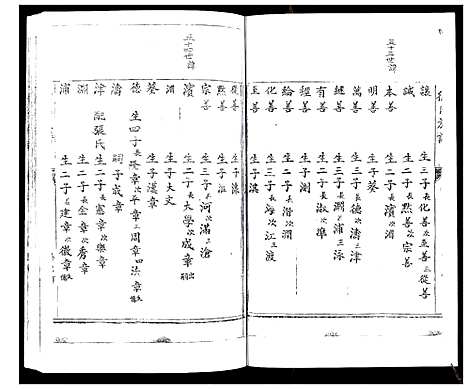 五十三世譜
讓 生三子長化善次至善三從善
誠 生二子長熙善次宗善
本善 生二子長濱次湑
明善 生子葵
萬善 生三子長德次濤三津
繼善 生三子長淵次浦三泳
有善 生二子長淑次
程善 生子澍
給善 生二子長潛次澗
化善 生三子長海次江三波
至善 生子漢
五十四世譜
從善 生子濂
熙善 生子
宗善 生三子長河次滿三滄
濱 生二子長學次成章出嗣
湑 生子大文
葵 生子漢章
德 生四子長章次平章三周章四法章
濤 嗣子成章
津 配張氏 生二子長憲章次樂章
淵 生二子長金章次秀章
浦 生二子長建章次徽章